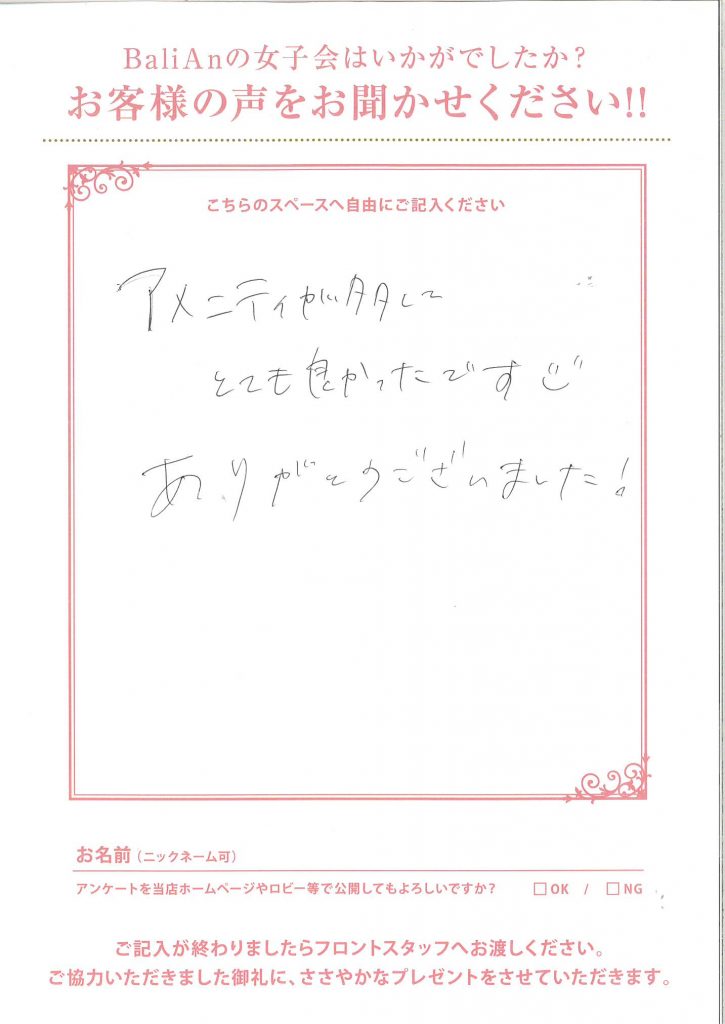 BaliAnの女子会はいかがでしたか?
お客様の声をお聞かせください!!
こちらのスペースへ自由にご記入ください
アメニティが多くて
とても良かったです
ありがとうございました!
お名前(ニックネーム可)
アンケートを当店ホームページやロビー等で公開してもよろしいですか? □OK / □NG
ご記入が終わりましたらフロントスタッフへお渡しください。
ご協力いただきました御礼に、ささやかなプレゼントをさせていただきます。